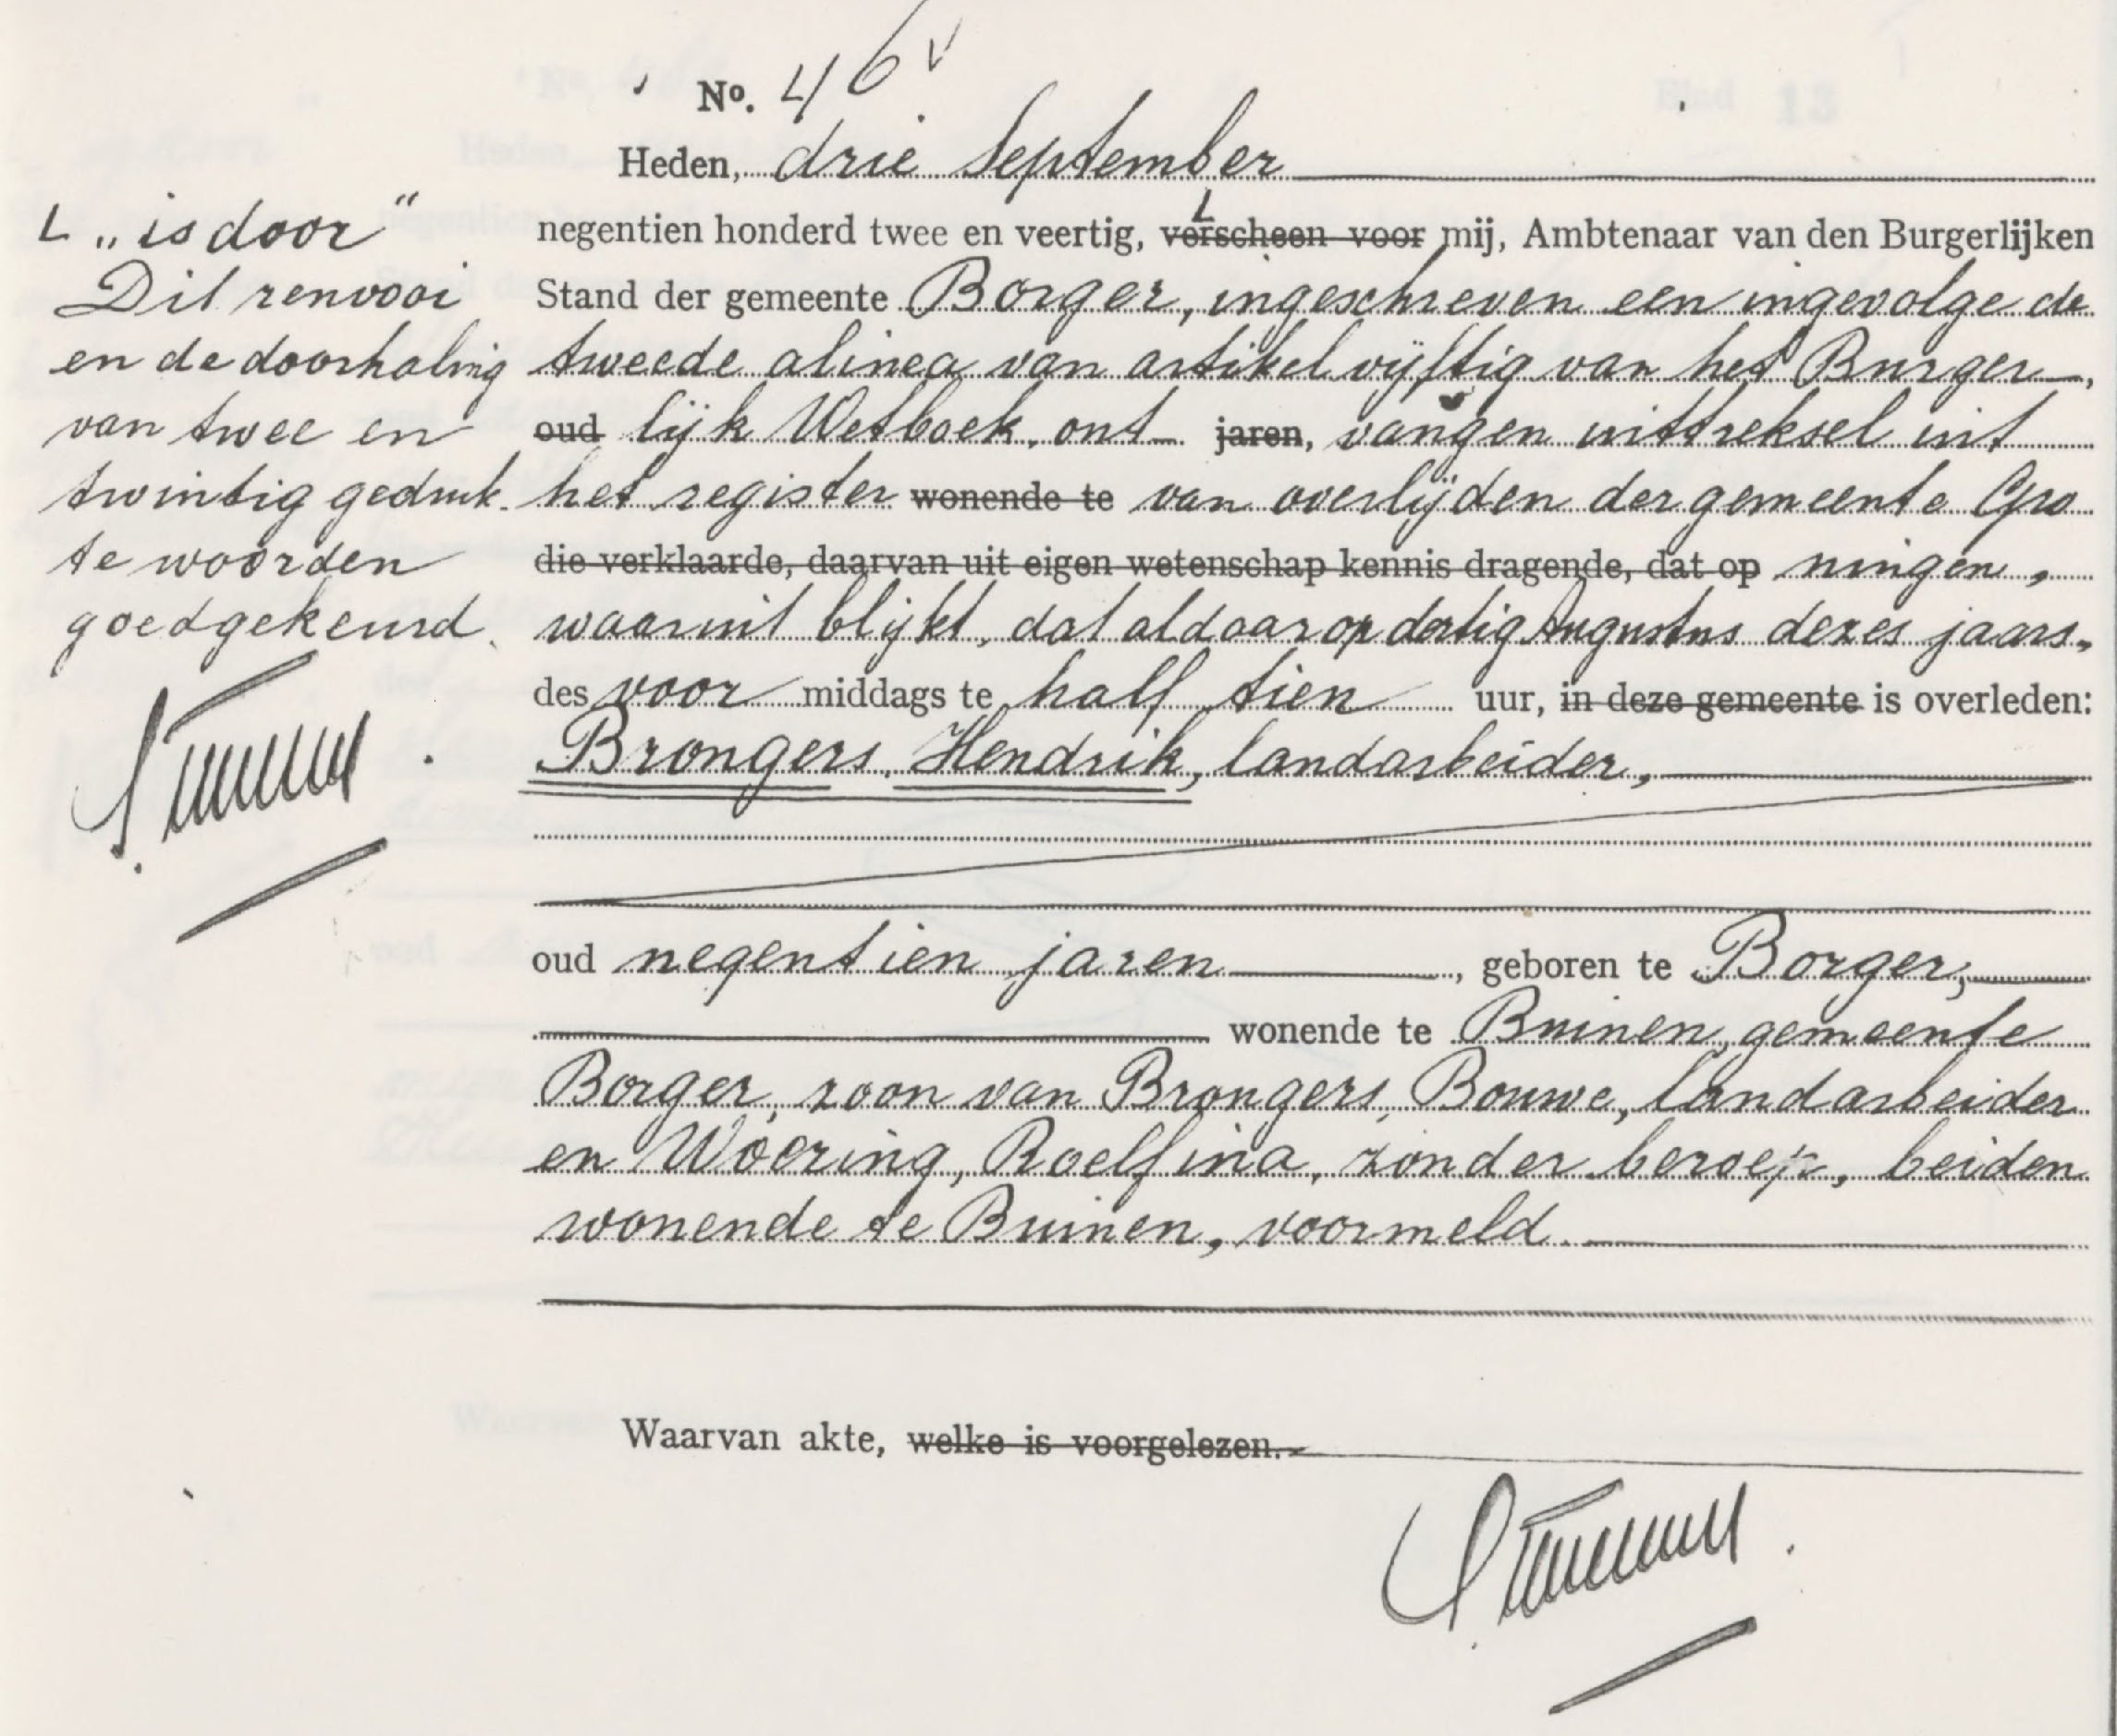 No. 46
Heden, drie September
negentien honderd twee en veertig, verscheen voor mij, Ambtenaar van den Burgerlijken
Stand der gemeente Borger, ingeschreven een ingevolge de
tweede alinea van artikel vijftig van het Burger-
oud lijk Wetboek, ont- jaren, vangen uittreksel uit
het register wonende te van overlijden der gemeente Gro
die verklaarde, daarvan uit eigen wetenschap kennis dragende, dat op ningen,
waaruit blijkt, dat aldaar op dertig Augustus dezes jaars,
des voor middags te half tien uur, in deze gemeente is overleden:
Brongers, Hendrik, landarbeider,
oud negentien jaren, geboren te Borger,
wonende te Buinen, gemeente
Borger, zoon van Brongers, Bouwe, landarbeider
en Woering, Roelfina, zonder beroep, beiden
wonende te Buinen, voormeld.
Waarvan akte, welke is voorgelezen.
L „is door"
Dit renvooi
en de doorhaling
van twee en
twintig gedruk-
te woorden
goedgekeurd.